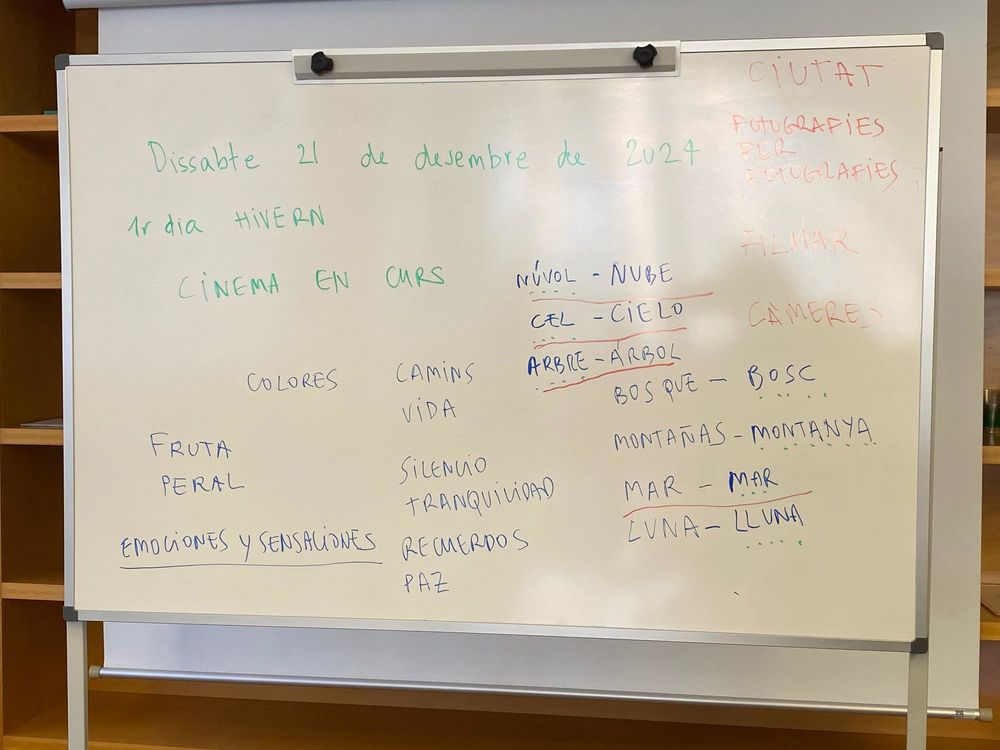 CIUTAT
FOTOGRAFIES
PER
FOTOGRAFIES
Dissabte 21 de desembre de 2024
1r dia HIVERN
FILMAR
CINEMA EN CURS
NÚVOL - NUBE
CEL - CIELO
CÀMERES
ARBRE - ÁRBOL
COLORES
CAMINS
VIDA
BOSQUE - BOSC
FRUTA
PERAL
MONTAÑAS - MONTANYA
SILENCIO
TRANQUILIDAD
MAR - MAR
LUNA - LLUNA
EMOCIONES Y SENSACIONES
RECUERDOS
PAZ